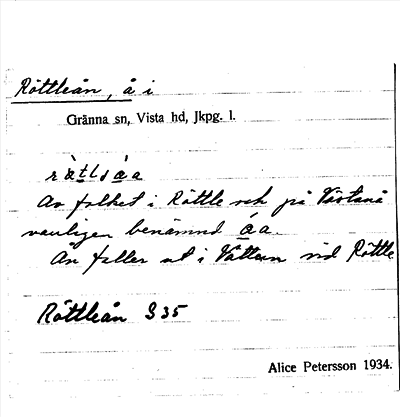 Röttleån, å i
Gränna sn, Vista hd, Jkpg. l.
Av folket i Röttle och på Västanå
vanligen benämnd åa.
Ån faller ut i Vättern vid Röttle
Röttleån S 35
Alice Petersson 1934.